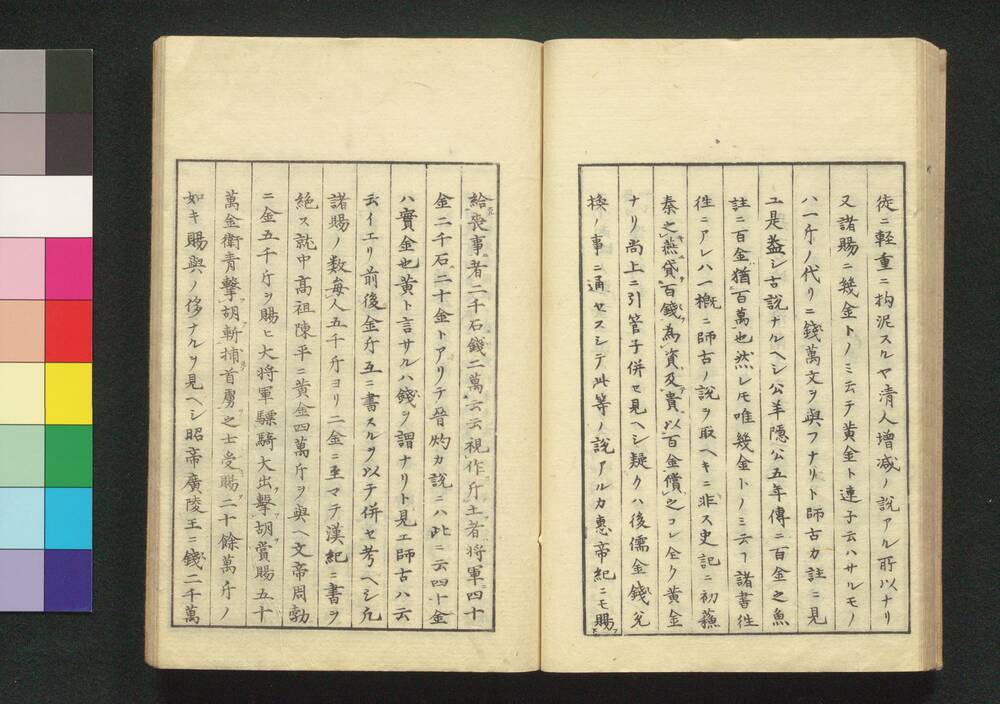 徒ニ軽重ニ拘泥スルヤ清人増減ノ説アル所以ナリ
又諸賜ニ幾金トノミ云テ黄金ト連子云ハサルモノ
ハ一斤ノ代リニ錢萬文ヲ與フナリト師古カ註ニ見
ユ是葢シ古說ナルヘシ公羊隱公五年傳ニ百金之魚
註ニ百金猶百萬也然レモ唯幾金トノミ云フ諸書徃
徃ニアレハ一概ニ師古ノ説ヲ取ヘキニ非ス史記ニ初蘓
秦之燕貸百錢為資及貴以百金償之コレ全ク黄金
ナリ尚上ニ引管子併セ見ヘシ疑クハ後儒金錢兌
換ノ事ニ通セスシテ此等ノ説アルカ惠帝紀ニモ賜
給喪事者二千石錢二萬云云視作斤土者將軍四十
金二千石二十金トアリテ晉灼カ説ニハ此ニ云四十金
ハ實金也黄ト言サルハ錢ヲ謂ナリト見エ師古ハ云
云イエリ前後金斤互ニ書スルヲ以テ併セ考ヘシ凢
諸賜ノ数毎人五千斤ヨリ二金ニ至マテ漢紀ニ書ヲ
絶ス就中髙祖陳平ニ黄金四萬斤ヲ與ヘ文帝周勃
ニ金五千斤ヲ賜ヒ大将軍驃騎大出擊胡賞賜五十
萬金衛青擊胡斬捕首虜之士受賜二十餘萬斤ノ
如キ賜與ノ侈ナルヲ見ヘシ昭帝廣陵王ニ錢二千萬